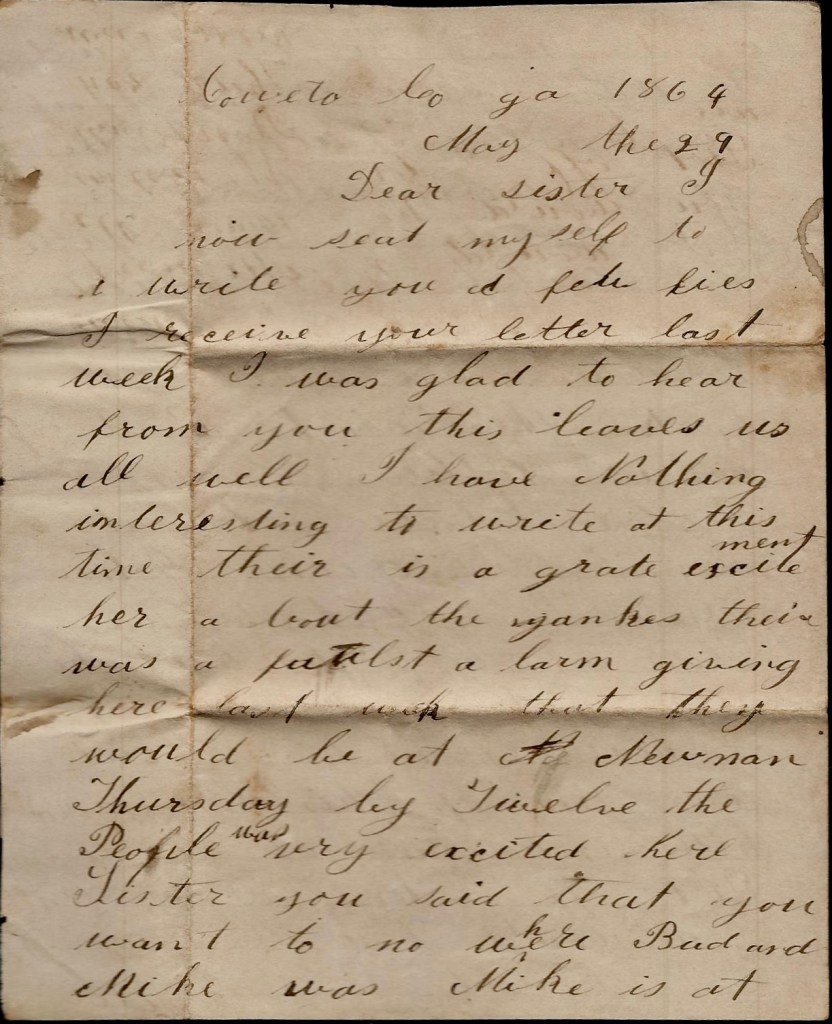 Coweta Co ga 1864
May the 29
Dear sister I
now seat myself to
write you a few lies
I receive your letter last
week I was glad to hear
from you this leaves us
all well I have Nothing
interesting to write at this
time their is a grate excite ment
her a bout the yankes their
was a a larm giving
here last week that they
would be at Newnan
Thursday by Twelve the
People was very excited here
Sister you said that you
want to no where Bud and
Mike was Mike is at